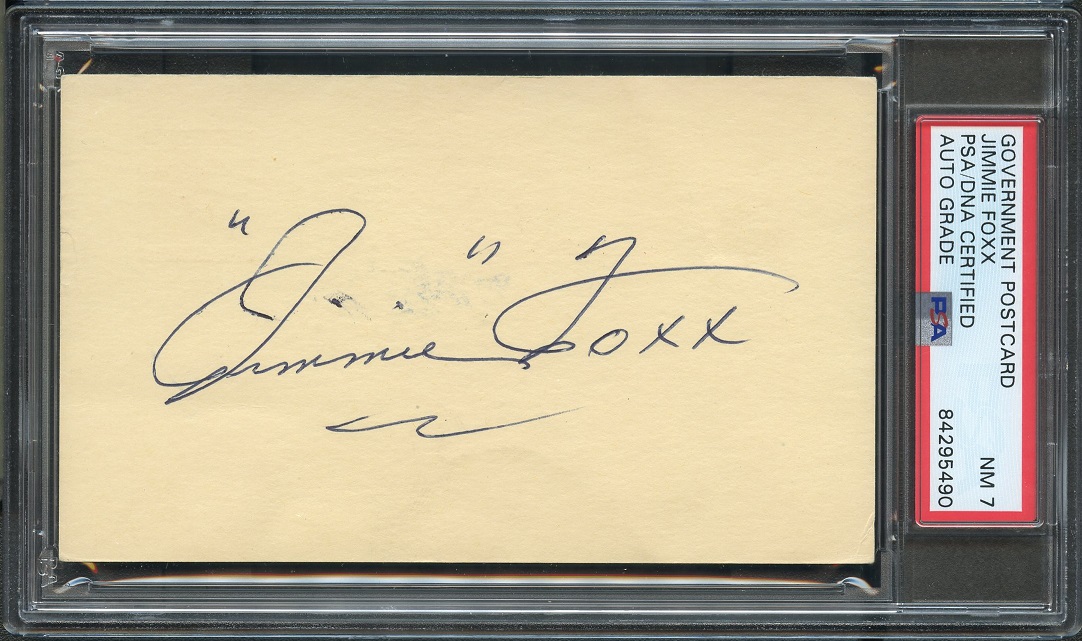 "Jimmie" Foxx
GOVERNMENT POSTCARD
JIMMIE FOXX
PSA/DNA CERTIFIED
AUTO GRADE
NM 7
84295490
PSA